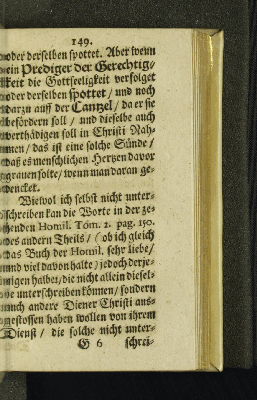 149.
oder derselben spottet. Aber wenn
ein Prediger der Gerechtig/
keit die Gottseeligkeit verfolget
oder derselben spottet / und noch
darzu auff der Cantzel / da er sie
befördern soll / und dieselbe auch
verthädigen soll in Christi Nah-
men / das ist eine solche Sünde /
daß es menschlichen Hertzen davor
grauen solte / wenn man daran ge-
dencket.
Wiewol ich selbst nicht unter-
schreiben kan die Worte in der ze-
henden Homil. Tom. 2. pag. 150.
des andern Theils / (ob ich gleich
das Buch der Homil. sehr liebe/
und viel davon halte) jedoch derje-
nigen halber / die nicht allein diesel-
be unterschreiben können / sondern
auch andere Diener Christi aus-
gestossen haben wollen von ihrem
Dienst / die solche nicht unter-
G 6 schrei-